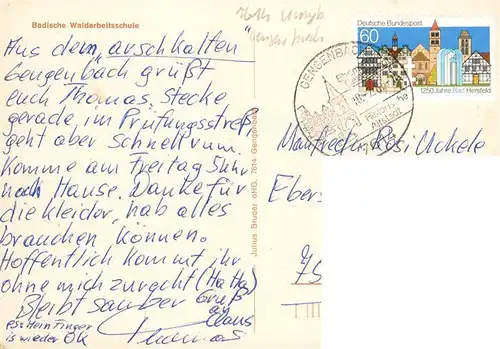 Badische Waldarbeitsschule
Aus dem „arschkalten"
Gengenbach grüßt
euch Thomas. Stecke
gerade im Prüfungsstreß,
geht aber Schnell rum.
Komme am Freitag 5 Uhr
nach Hause. Danke für
die Kleider, hab alles
brauchen können.
Hoffentlich kommt ihr
ohne mich zurecht (Ha Ha)
Bleibt sauber Gruß
an
Claus
Thomas
PS: Mein Finger
is wieder OK
Julius Bruder oHG, 7614 Gengenbach
Deutsche Bundespost
60
1250 Jahre Bad Hersfeld
GENGENBACH
Manfred u. Rosi Uckele
Eber
75